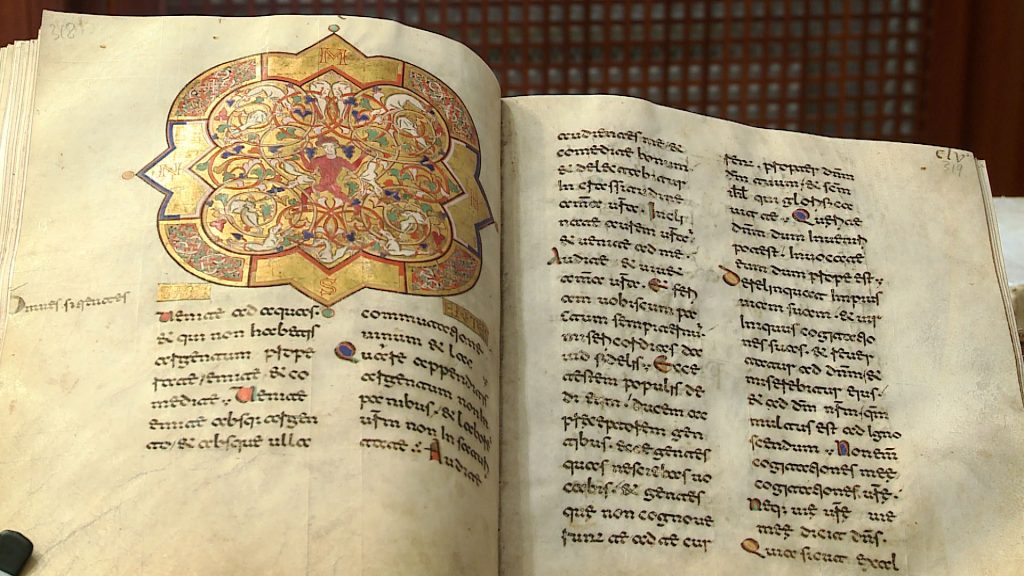 318
Omnes sitientes
Venite ad aquas.
& qui non habetis
argentum prope
rate / emite & co
medite . Venite
emite absq; argen
to / & absque ulla
commutatione
vinum & lac .
Quare appenditis
argentum non in
panibus / & labore
vrm non in saturi
tate : Audite
clv
319
audientes me / &
comedite bonum
& delectabitur
in crassitudine
anima vra . Incli
nate aurem vram
& venite ad me
Audite & vivet
anima vra . & feri
am vobiscum pac
tum sempiternum
misericordias da
vid fideles . Ecce
testem populis de
di eum / ducem ac
preceptorem gen
tibus . Ecce gentes
quas nesciebas vo
cabis . & gentes
que non cognove
runt te ad te cur
rent . propter dnm
dm tuum / & scm
isrl qui glorifica
vit te . Querite
dnm dum inveniri
potest . Invocate
eum dum prope est .
Derelinquat impius
viam suam . & vir
iniquus cogitatio
nes suas . & rever
tatur ad dnm &
miserebitur eius .
& ad dm nrm qm
multus est ad igno
scendum . Non enim
cogitationes mee
cogitationes vre .
Neq; vie vre vie
mee dicit dns .
Quia sicut exal